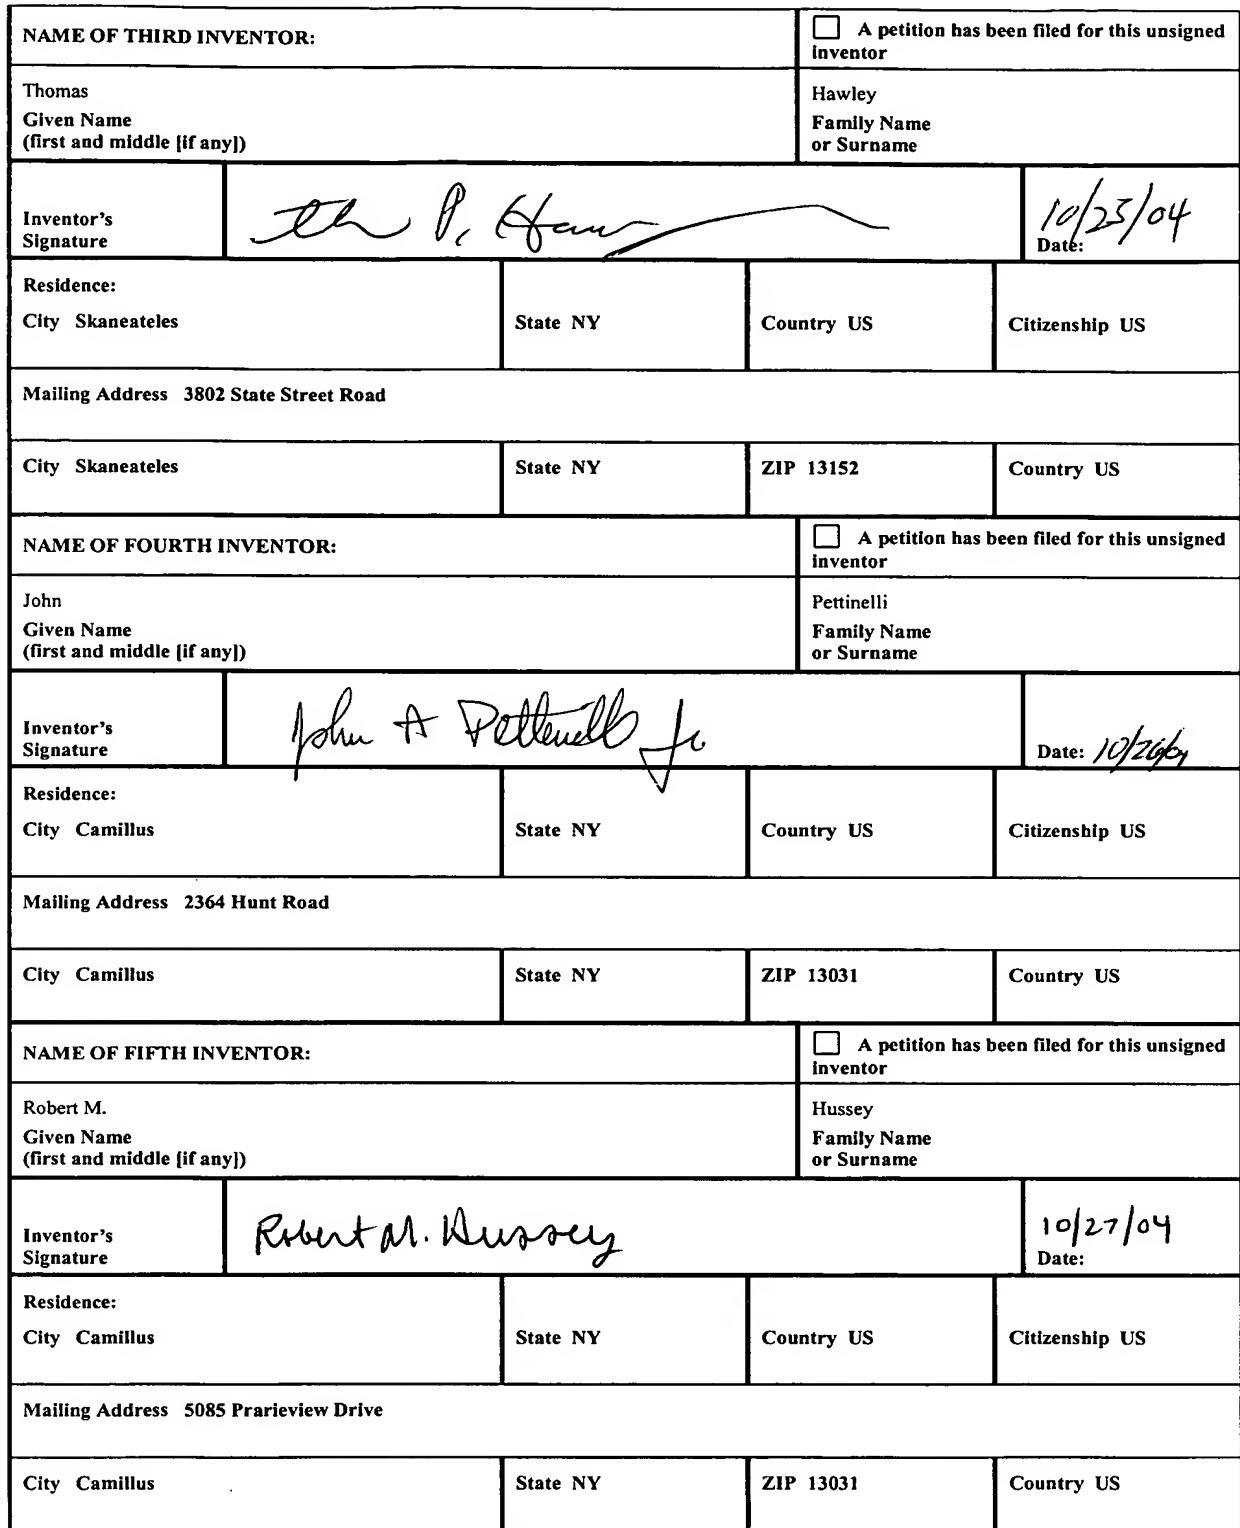 NAME OF THIRD INVENTOR:
☐ A petition has been filed for this unsigned
inventor
Thomas
Given Name
(first and middle [if any])
Hawley
Family Name
or Surname
Inventor's
Signature
P.
10/25/04
Date:
Residence:
City Skaneateles
State NY
Country US
Citizenship US
Mailing Address 3802 State Street Road
City Skaneateles
State NY
ZIP 13152
Country US
NAME OF FOURTH INVENTOR:
☐ A petition has been filed for this unsigned
inventor
John
Given Name
(first and middle [if any])
Pettinelli
Family Name
or Surname
Inventor's
Signature
John A Pettinelli Jr
Date: 10/26/04
Residence:
City Camillus
State NY
Country US
Citizenship US
Mailing Address 2364 Hunt Road
City Camillus
State NY
ZIP 13031
Country US
NAME OF FIFTH INVENTOR:
☐ A petition has been filed for this unsigned
inventor
Robert M.
Given Name
(first and middle [if any])
Hussey
Family Name
or Surname
Inventor's
Signature
Robert M. Hussey
10/27/04
Date:
Residence:
City Camillus
State NY
Country US
Citizenship US
Mailing Address 5085 Prarieview Drive
City Camillus
State NY
ZIP 13031
Country US